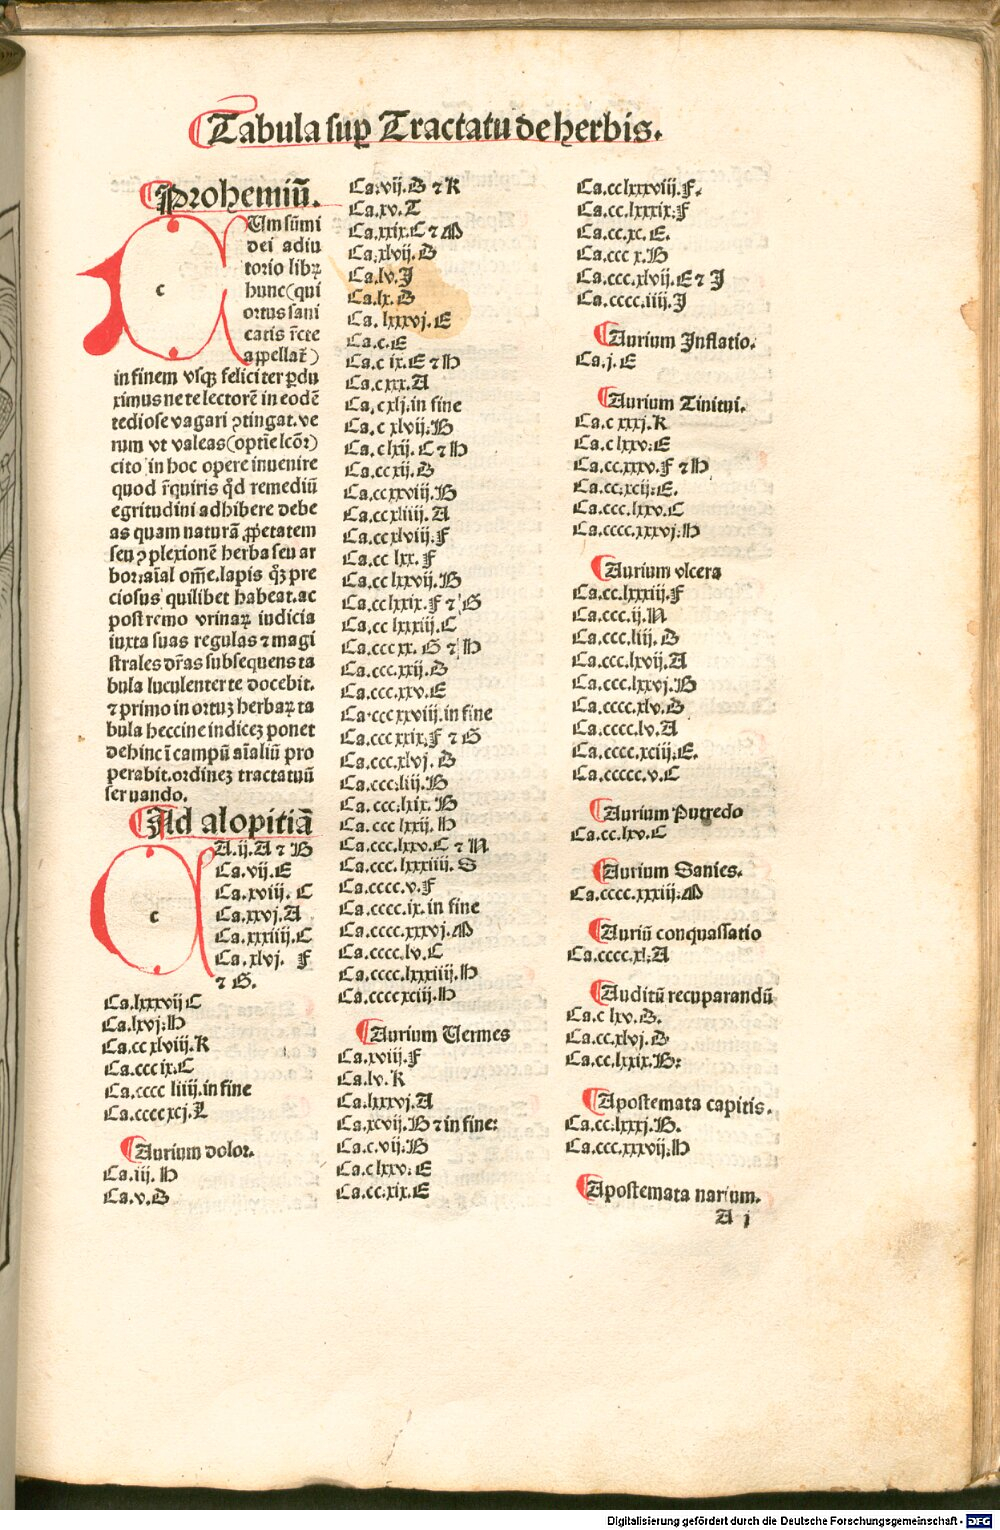 Tabula sup Tractatu de herbis.
Prohemiū.
c
Um sūmi
dei adiu
torio librꝝ
hunc (qui
ortus sani
tatis rcte
appellat)
in finem vsqꝫ feliciter ꝑdu
ximus ne te lectorē in eodē
tediose vagari ꝯtingat. ve
rum vt valeas
cito in hoc opere inuenire
quod r̄quiris qd̄ remediū
egritudini adhibere debe
as quam naturā ꝓpetatem
seu ꝯplexionē herba seu ar
bor: aīal om̄e. lapis qꝫ pre
ciosus quilibet habeat. ac
postremo vrinaꝝ indicia
iuxta suas regulas ⁊ magi
strales dr̄as subsequens ta
bula luculenter te docebit.
⁊ primo in ortuꝫ herbaꝝ ta
bula heccine indiceꝫ ponet
dehinc ī campū aīaliū pro
perabit. ordineꝫ tractatuū
seruando.
Ad alopitiā
c
A.ij. A ⁊ B
Ca.vij.E
Ca.xviij. C
Ca.xxvj.A
Ca.xxxiiij.C
Ca.xlvj. F
⁊ G.
Ca.lxxxvij C
Ca.lxvj.H
Ca.cc xlviij.K
Ca.ccc ix.C
Ca.cccc liiij.in fine
Ca.cccc xcj.L
Aurium dolor.
Ca.iij. H
Ca.v.G
Ca.vij.G ⁊ K
Ca.xv.T
Ca.xxix.C ⁊ M
Ca.xlvij.G
Ca.lv.J
Ca.lx.G
Ca.lxxxvj.E
Ca.c.E
Ca.c ix.E ⁊ H
Ca.c xxx.A
Ca.c xlj.in fine
Ca.c xlvij.B
Ca.c lxij.C ⁊ H
Ca.cc xij.G
Ca.cc xxviij.B
Ca.cc xliiij.A
Ca.cc xlviij.F
Ca.cc lxx.F
Ca.cc lxxvij.B
Ca.cc lxxix.F ⁊ G
Ca.cc lxxxiij.C
Ca.ccc xx. G ⁊ H
Ca.ccc.xxij.G
Ca.ccc.xxv.E
Ca.ccc xxviij.in fine
Ca.ccc xxix.F ⁊ G
Ca.ccc.xlvj.G
Ca.ccc.liij.B
Ca.ccc.lxix.B
Ca.ccc lxxij.H
Ca.ccc.lxxv.C ⁊ N
Ca.ccc.lxxxiiij.S
Ca.cccc.v.F
Ca.cccc.ix.in fine
Ca.cccc.xxxvj.M
Ca.cccc.lv.C
Ca.cccc.lxxxiiij.H
Ca.cccc xciij.H
Aurium Vermes
Ca.xviij.F
Ca.lv.K
Ca.lxxxvj.A
Ca.xcvij.B ⁊ in fine:
Ca.c.vij:B
Ca.c lxxv.E
Ca.cc.xix.E
Ca.cc lxxxviij.F.
Ca.cc.lxxxix.F
Ca.cc.xc.E.
Ca.ccc x.B
Ca.ccc.xlvij.E ⁊ J
Ca.cccc.iiij.J
Aurium Inflatio.
Ca.j.E
Aurium Tinitui.
Ca.c xxxj.K
Ca.c lxxv.E
Ca.cc.xxxv.F ⁊ H
Ca.cc.xcij.E.
Ca.ccc.lxxv.C
Ca.cccc.xxxvj.H
Aurium vlcera
Ca.cc.lxxxiij.F
Ca.ccc.ij.N
Ca.ccc.liij.G
Ca.ccc.lxvij.A
Ca.ccc.lxxvj.B
Ca.cccc.xlv.G
Ca.cccc.lv.A
Ca.cccc.xciij.E.
Ca.ccccc.v.C
Aurium Putredo
Ca.cc.lxv.C
Aurium Sanies.
Ca.cccc.xxxiij.M
Auriū conquassatio
Ca.cccc.xl.A
Auditū recuparandū
Ca.c lxv.G.
Ca.cc.xlvj.G
Ca.cc.lxxix.B:
Apostemata capitis.
Ca.cc.lxxxj.B.
Ca.ccc.xxxvij.H
Apostemata narium.
A j
Digitalisierung gefördert durch die Deutsche Forschungsgemeinschaft - DFG